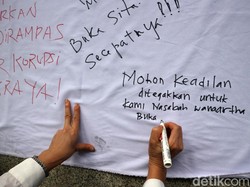 RKAN
DIRAMPAS
R KORUPSI
ERA YA!
Buka Sita
Secepatnya !!!
Mohon Keadilan
ditegakkan untuk
Kami Nasabah wanaartha
Buka
detikcom